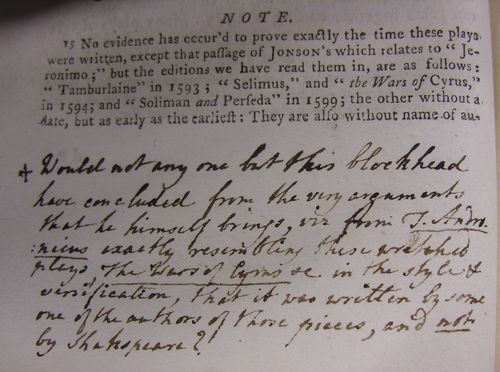 NOTE.
15 No evidence has occur'd to prove exactly the time these plays
were written, except that passage of JONSON's which relates to "Je-
ronimo;" but the editions we have read them in, are as follows:
"Tamburlaine" in 1593; "Selimus," and "the Wars of Cyrus,"
in 1594; and "Soliman and Perseda" in 1599; the other without a
date, but as early as the earliest: They are also without name of au-
+ Would not any one but this blockhead
have concluded from the very arguments
that he himself brings, viz from T. Andro
:nicus exactly resembling these wretched
plays The Wars of Cyrus &c in the style &
versification, that it was written by some
one of the authors of those pieces, and not
by Shakspeare?